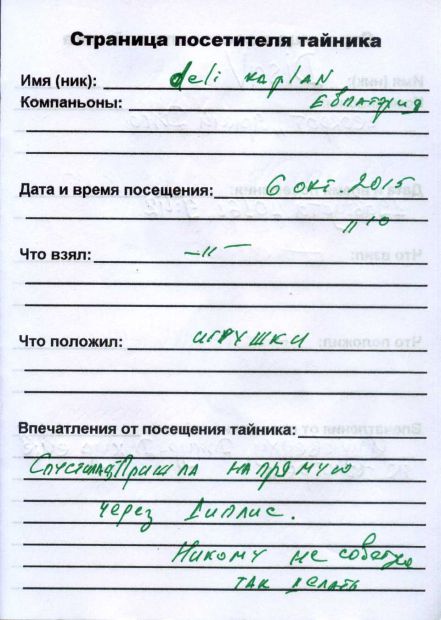 Страница посетителя тайника
Имя (ник): deli kaplan
Компаньоны: Евпатория
Дата и время посещения: 6 окт. 2015
11 10
Что взял: —11—
Что положил: игрушки
Впечатления от посещения тайника:
Пришла напрямую
через Диплис.
Никому не советую
так делать